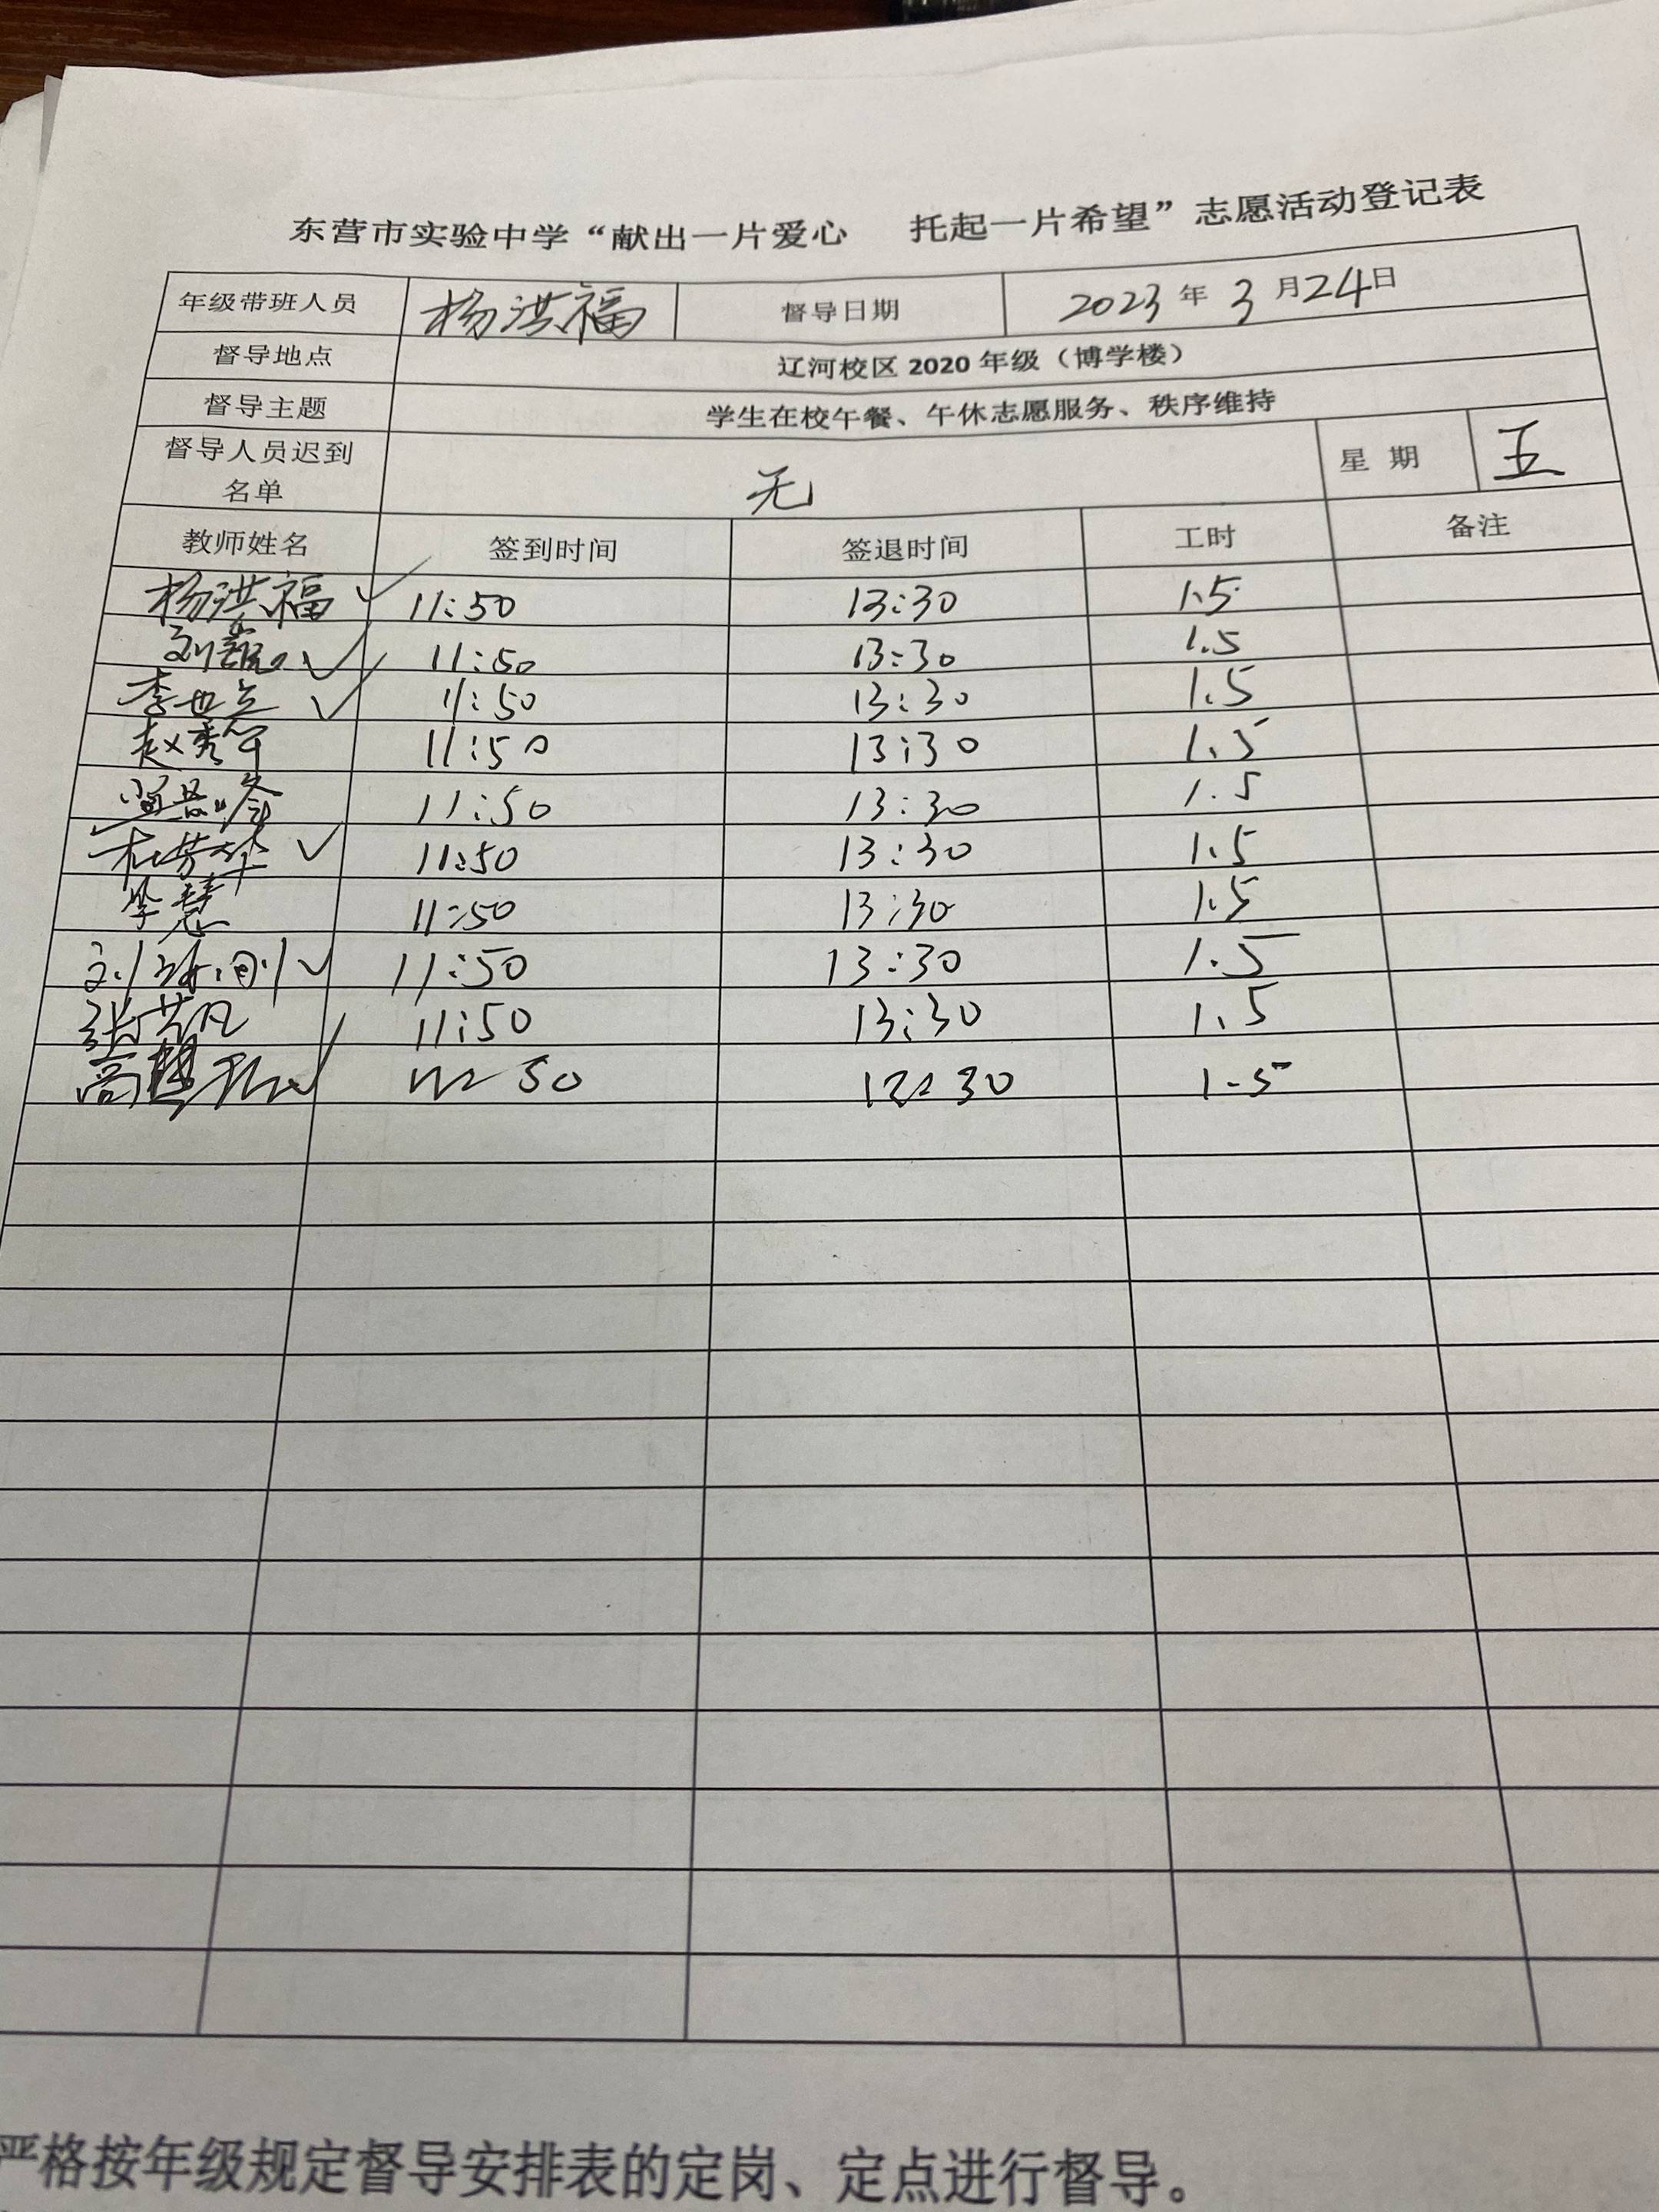 东营市实验中学“献出一片爱心 托起一片希望”志愿活动登记表
年级带班人员 杨洪福 督导日期 2023年3月24日
督导地点 辽河校区2020年级（博学楼）
督导主题 学生在校午餐、午休志愿服务、秩序维持
督导人员迟到名单 无 星期 五
教师姓名 签到时间 签退时间 工时 备注
杨洪福 ✓ 11:50 13:30 1.5
刘 ✓ 11:50 13:30 1.5
李世 ✓ 11:50 13:30 1.5
赵秀 11:50 13:30 1.5
11:50 13:30 1.5
杜芳华 ✓ 11:50 13:30 1.5
李慧 11:50 13:30 1.5
刘 ✓ 11:50 13:30 1.5
张芸凡 11:50 13:30 1.5
高 ✓ 50 30 1.5
严格按年级规定督导安排表的定岗、定点进行督导。